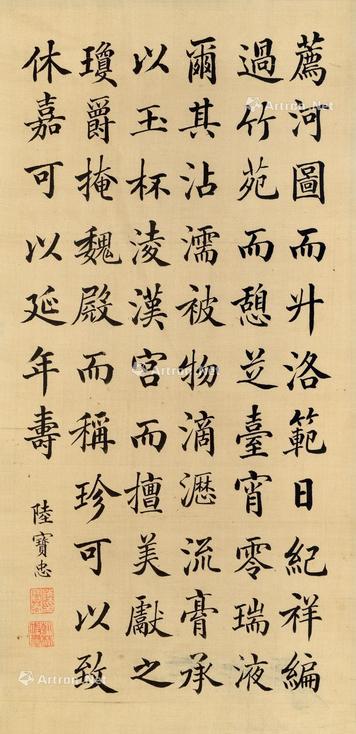 薦河圖而升洛範日紀祥編
過竹苑而憩芝臺宵零瑞液
爾其沾濡被物滴瀝流膏承
以玉杯淩漢宮而擅美獻之
瓊爵掩魏殿而稱珍可以致
休嘉可以延年壽
陸寶忠
Artron.Net